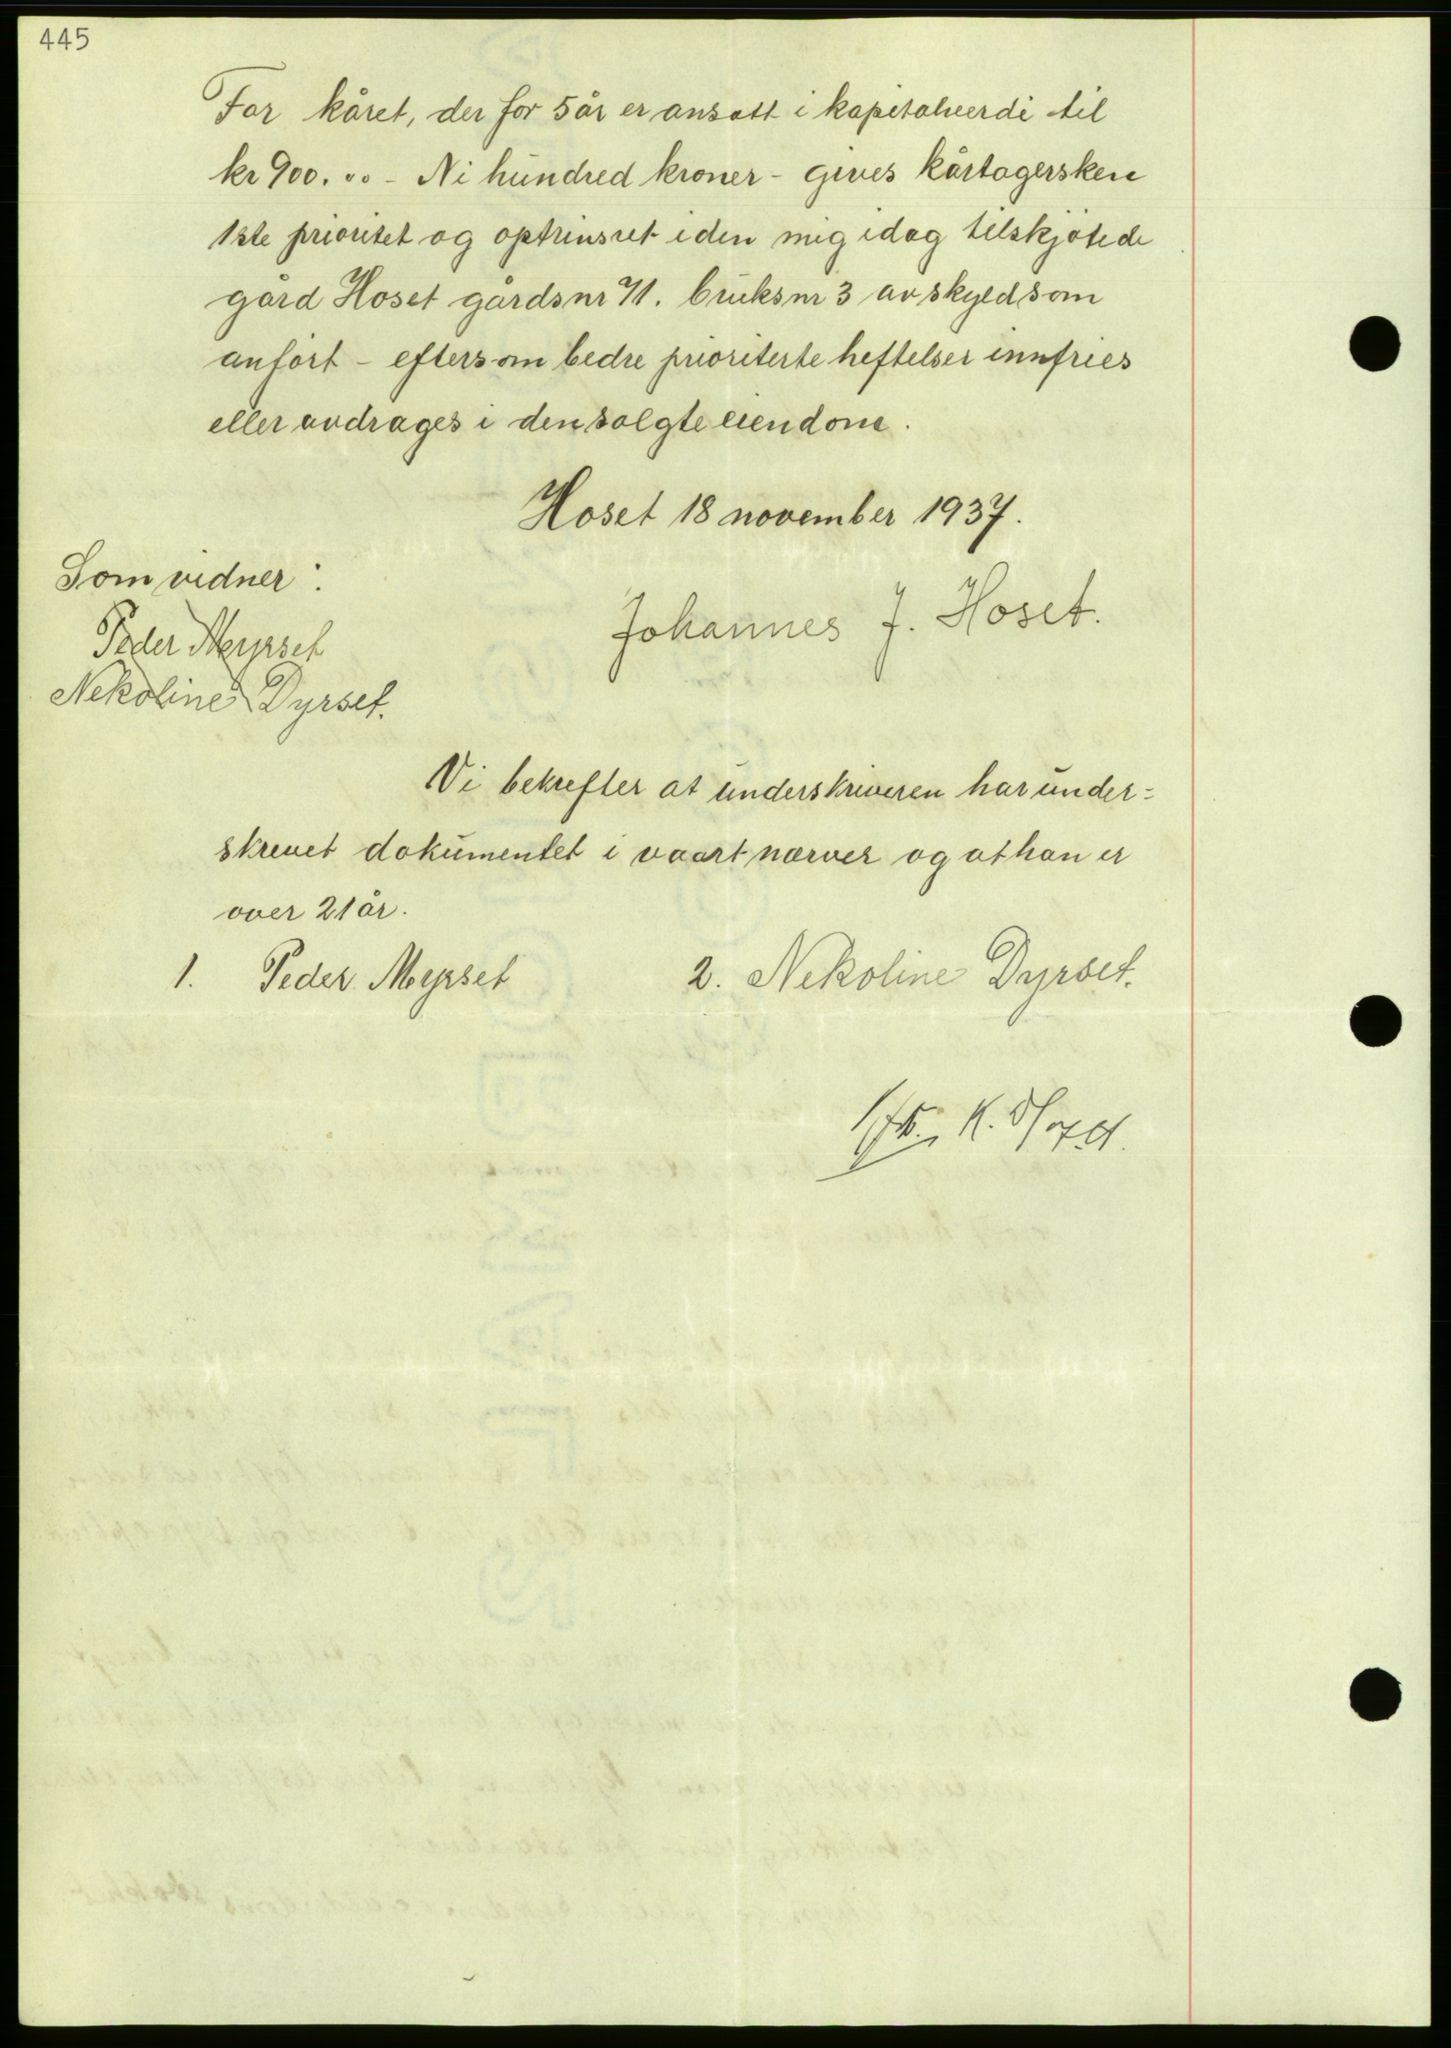 445
For kåret, der for 5 år er ansatt i kapitalverdi til
kr 900.00 - Ni hundred kroner - gives kårtagersken
1ste prioritet og optrinsret i den mig idag tilskjøtede
gård Hoset gårdsnr 71. bruksnr 3 av skyld som
anført - eftersom bedre prioriterte heftelser innfries
eller avdrages i den solgte eiendom.
Hoset 18 november 1937.
Som vidner:
Johannes J. Hoset.
Peder Meyrset
Nekoline Dyrset.
Vi bekrefter at underskriveren har under=
skrevet dokumentet i vaart nærver og at han er
over 21 år.
1. Peder Meyrset 2. Nekoline Dyrset.